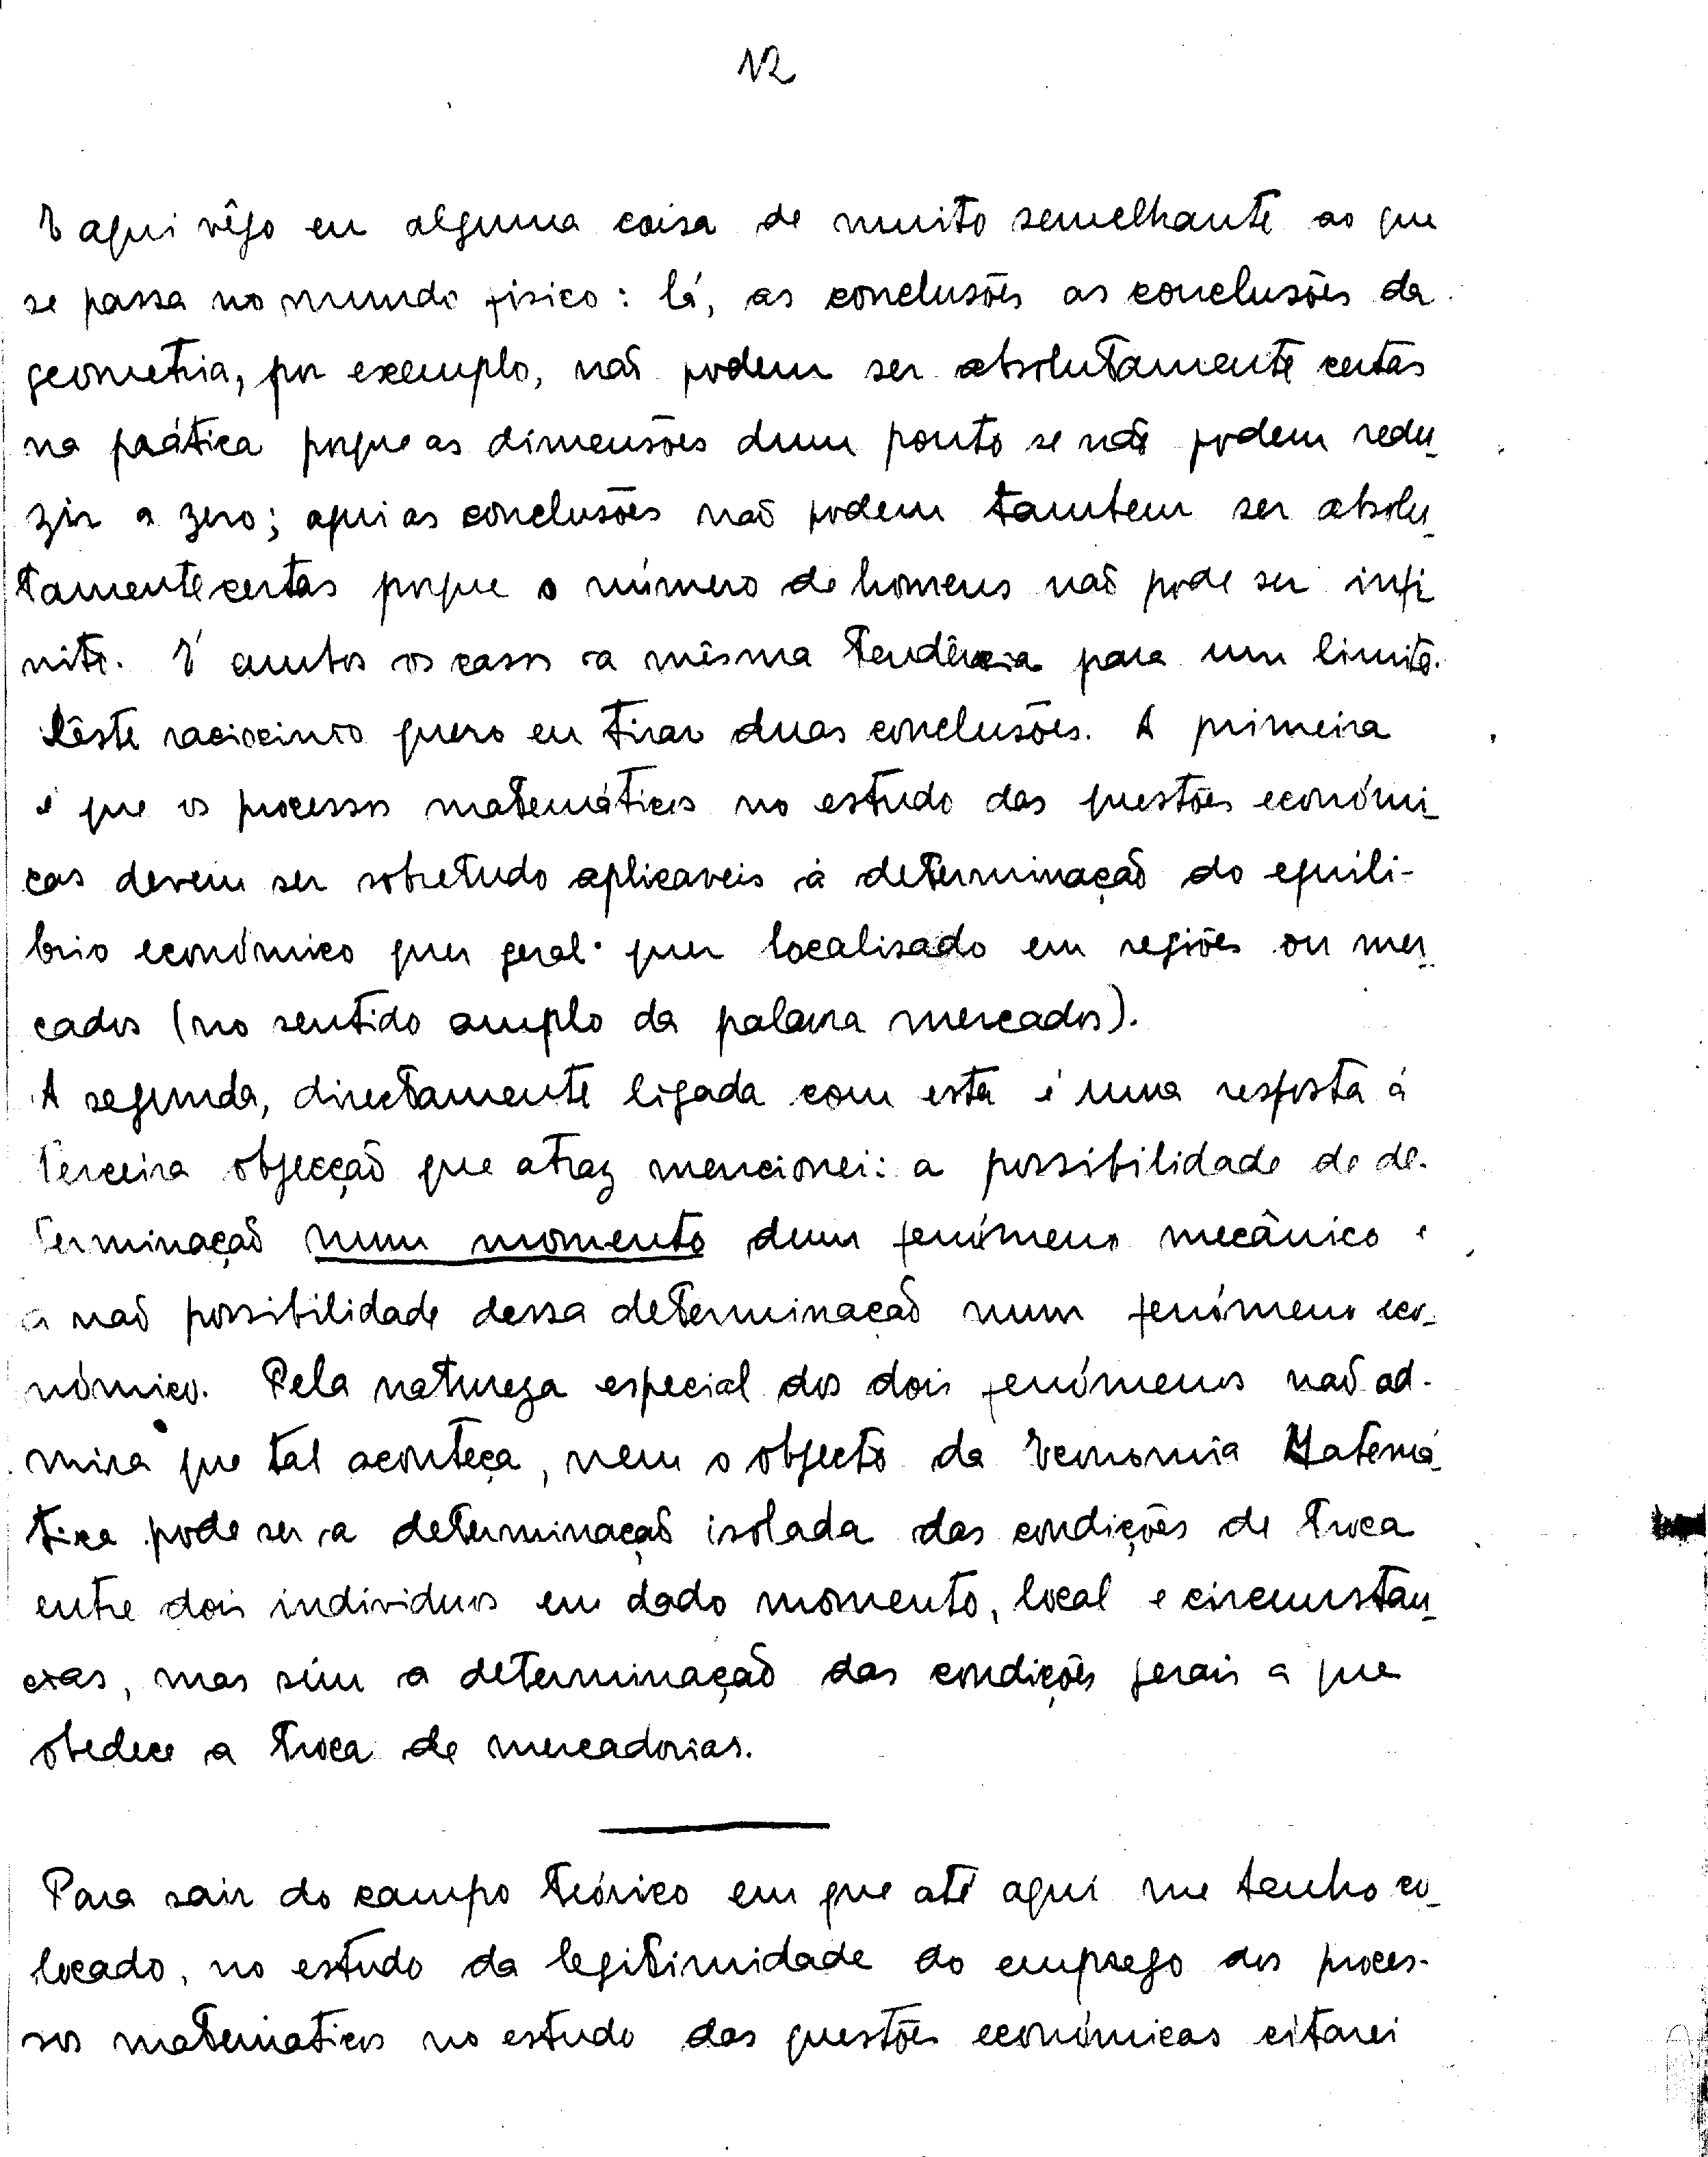 12
E aqui vêjo eu alguma coisa de muito semelhante ao que
se passa no mundo fisico: lá, as conclusões as conclusões da
geometria, por exemplo, não podem ser absolutamente certas
na prática porque as dimensões dum ponto se não podem redu_
zir a zero; aqui as conclusões não podem tambem ser absolu_
tamente certas porque o número de homens não pode ser infi
nito. É ambos os casos a mêsma tendência para um limite.
Dêste raciocinio quero eu tirar duas conclusões. A primeira
é que os processos matemáticos no estudo das questões económi_
cas devem ser sobretudo aplicaveis á determinação do equili-
brio económico quer geral quer localisado em regiões ou mer_
cados (no sentido amplo da palavra mercados).
A segunda, directamente ligada com esta é uma resposta á
terceira objecção que atraz mencionei: a possibilidade de de-
terminação num momento dum fenómeno mecânico e
a não possibilidade dessa determinação num fenómeno eco_
nómico. Pela natureza especial dos dois fenómenos não ad-
mira que tal aconteça, nem o objecto da Economia Matemá_
tica pode ser a determinação isolada das condições de troca
entre dois individuos em dado momento, local e circumstan_
cias, mas sim a determinação das condições gerais a que
obedece a troca de mercadorias.
Para sair do campo teórico em que até aqui me tenho co_
locado, no estudo da legitimidade do emprego dos proces-
sos matematicos no estudo das questões económicas citarei